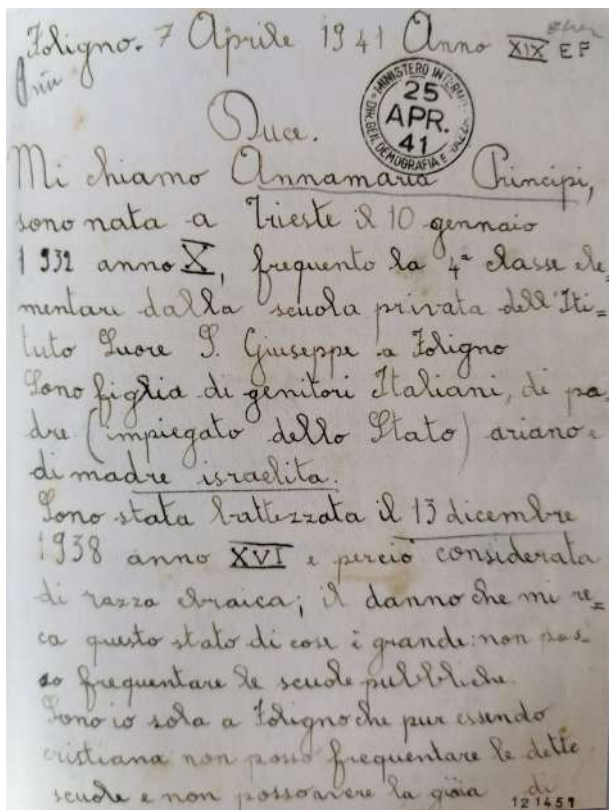 Foligno. 7 Aprile 1941 Anno XIX EF
Duce.
MINISTERO INTERNO
25
APR.
41
DIR. GEN. DEMOGRAFIA E RAZZA
Mi chiamo Annamaria Principi,
sono nata a Trieste il 10 gennaio
1932 anno X, frequento la 4ª classe ele=
mentare dalla scuola privata dell'Iti=
tuto Suore S. Giuseppe a Foligno
Sono figlia di genitori Italiani, di pa=
dre (impiegato dello Stato) ariano e
di madre israelita.
Sono stata battezzata il 13 dicembre
1938 anno XVI e perciò considerata
di razza ebraica; il danno che mi re=
ca questo stato di cose è grande: non pos=
so frequentare le scuole pubbliche.
Sono io sola a Foligno che pur essendo
cristiana non posso frequentare le dette
scuole e non posso avere la gioia di
121451